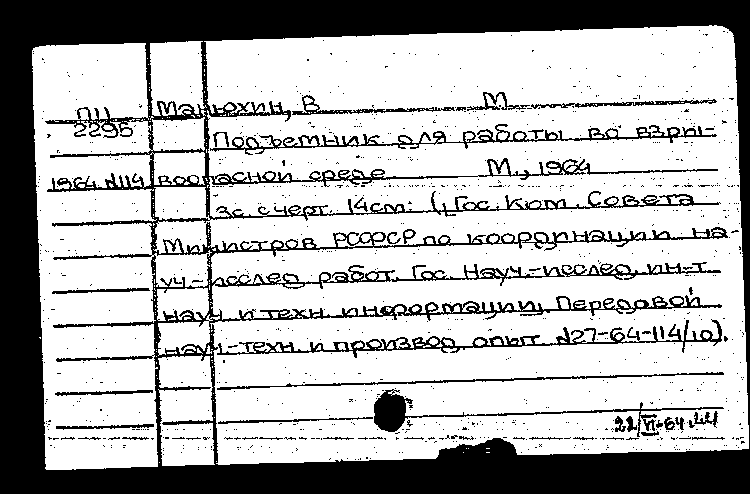 П11 Манюхин, В М
2295 Подъемник для работы во взры-
1964 N114 воопасной среде М., 1964
3с. с черт. 14см. (Гос. Ком. Совета
Министров РСФСР по координации на-
уч.-исслед. работ. Гос. Науч.-исслед. ин-т
науч. и техн. информации. Передовой
науч.-техн. и производ. опыт N27-64-114/10).
22/VI-64